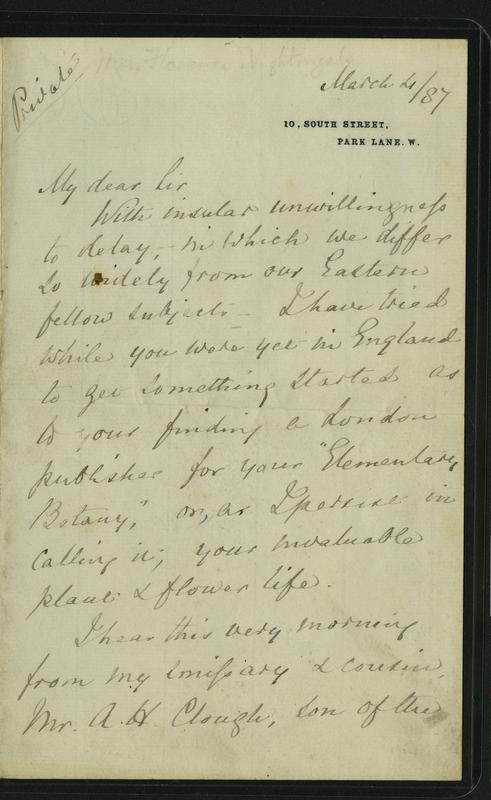 Private
Mrs. Florence Nightingale
March 4/87
10, SOUTH STREET,
PARK LANE. W.
My dear Sir
With insular unwillingness
to delay, - in which we differ
so widely from our Eastern
fellow subjects - I have tried
while you were yet in England
to get something started as
to your finding a London
publisher for your "Elementary
Botany," or, as I persist in
calling it, your invaluable
plant & flower life.
I hear this very morning
from my emissary & cousin,
Mr. A. H. Clough, son of the